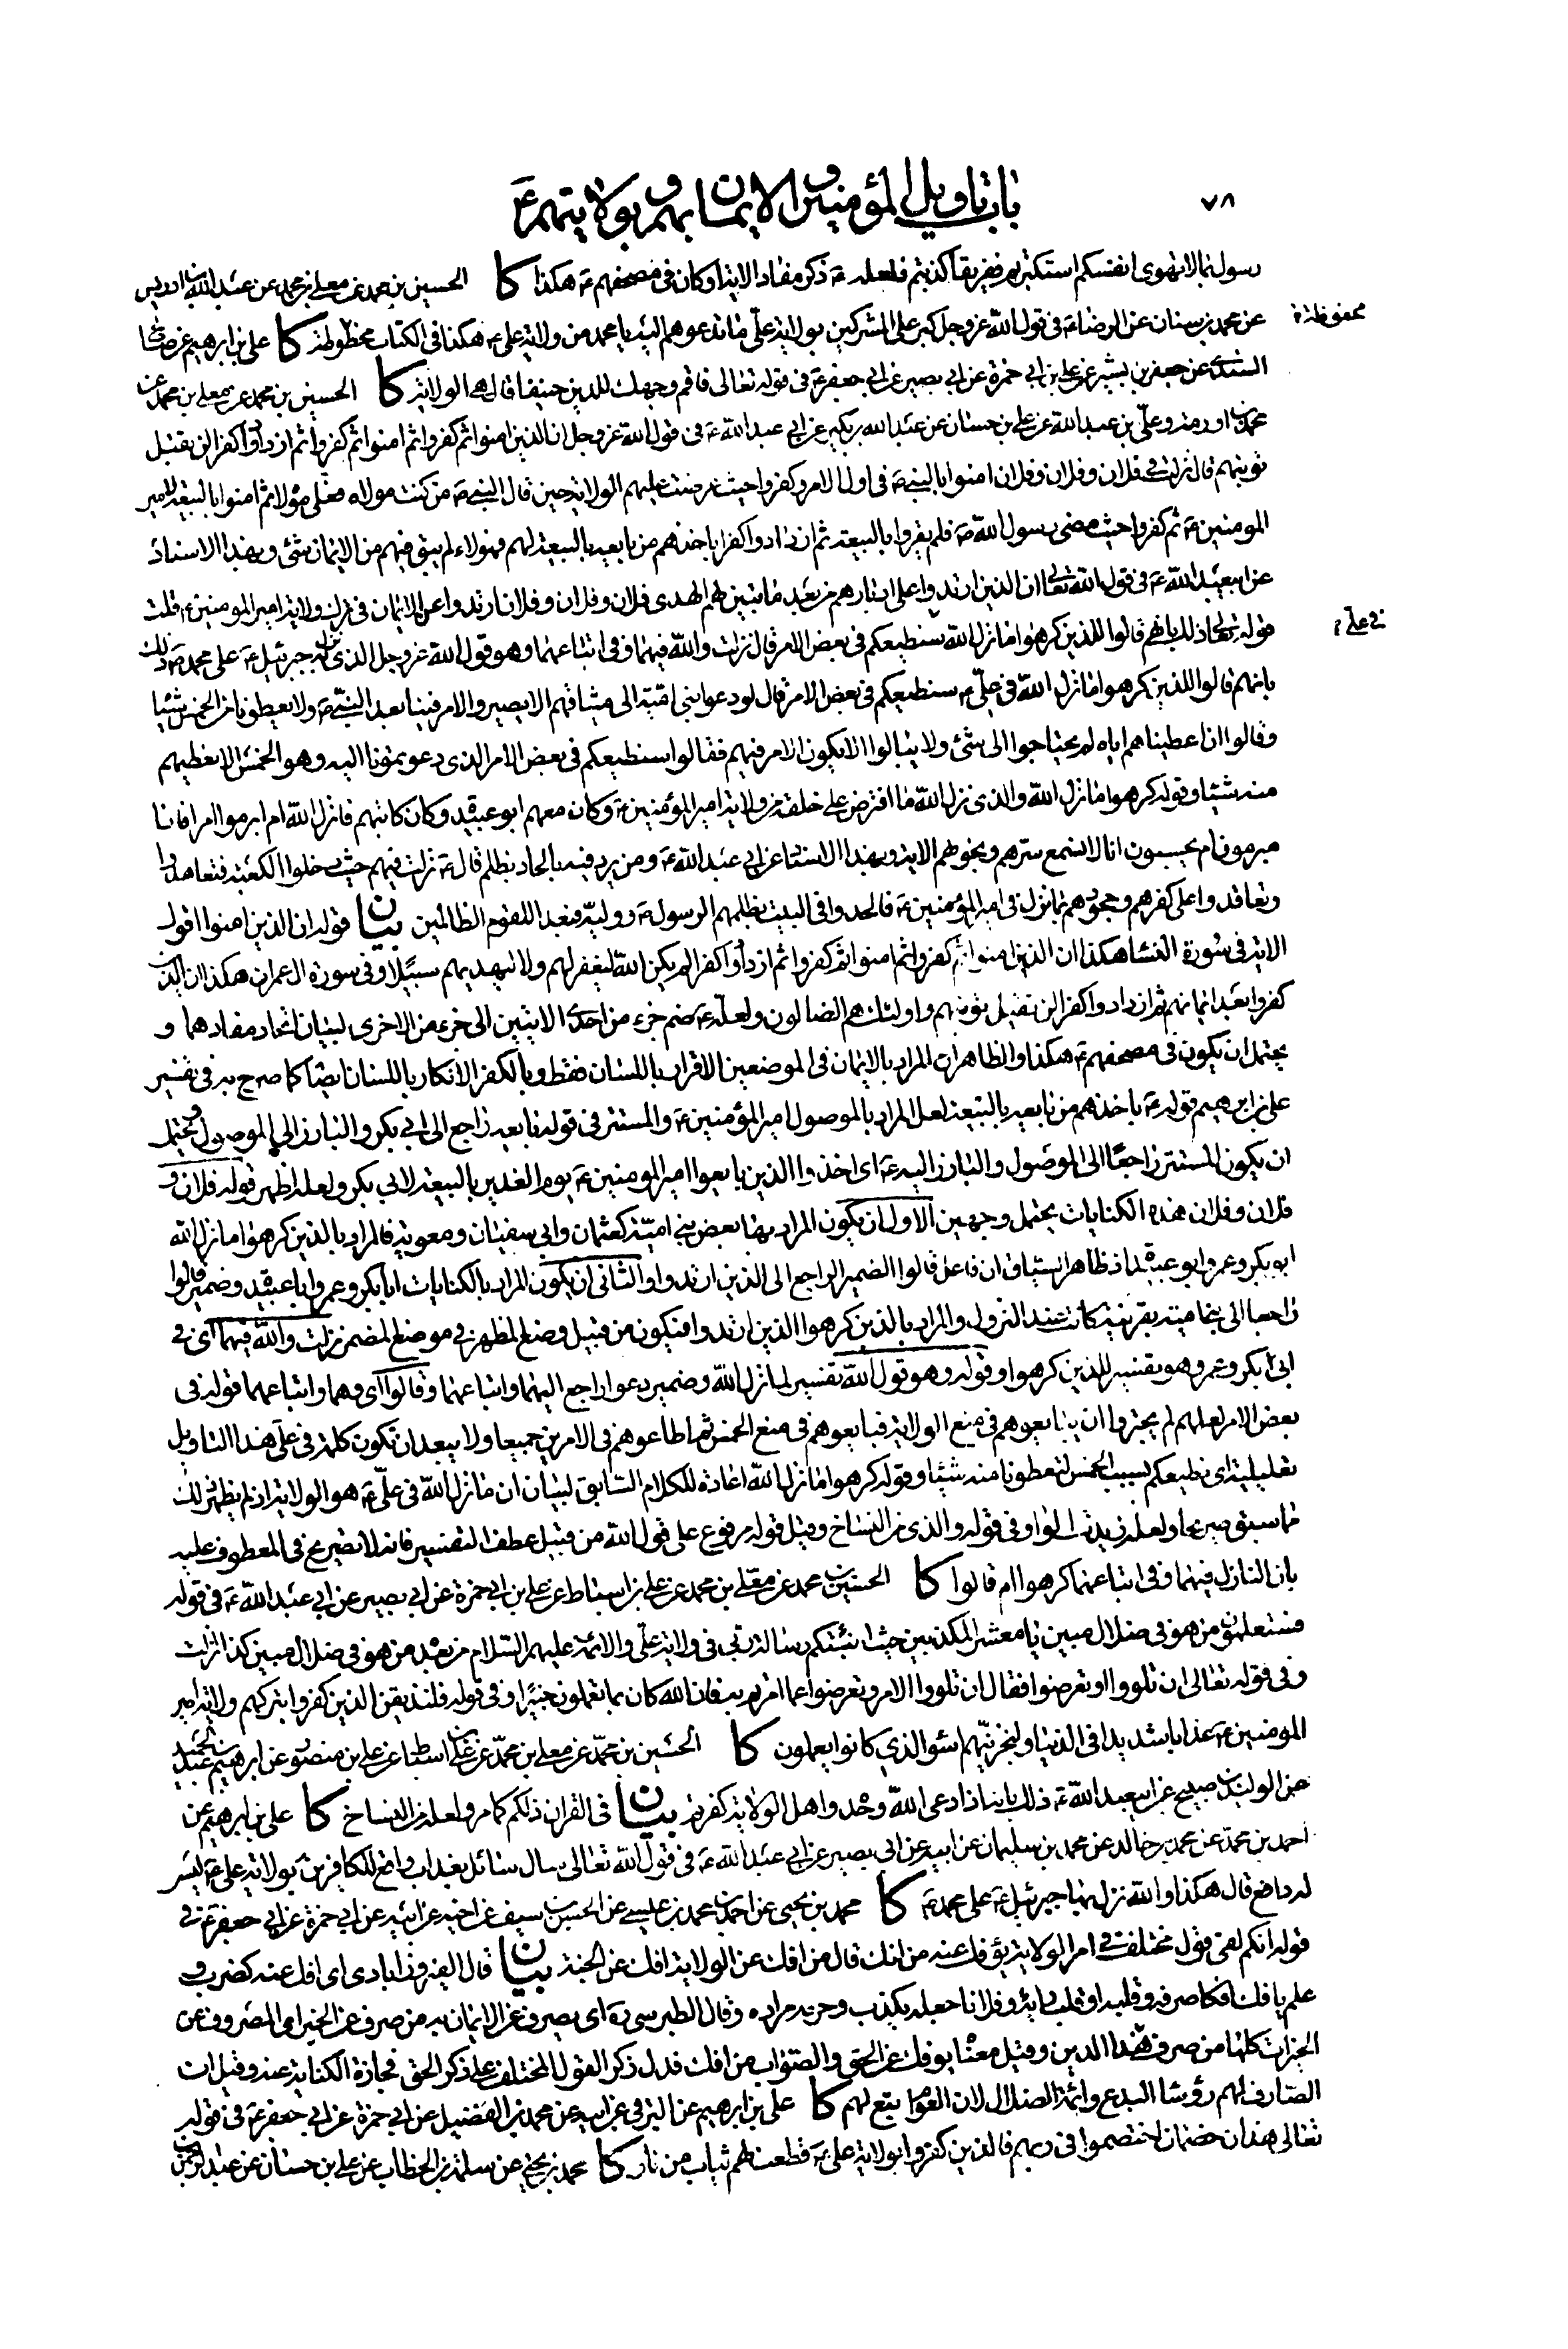 ٧٨
باب تاويل المؤمنين و الايمان بهم و بولايتهم ع
رسول بما لا تهوى انفسكم استكبرتم ففريقا كذبتم فلعله ع ذكر مفاد الاية او كان فى مصحفهم ع هكذا كا الحسين بن محمد عن معلى بن محمد عن عبد الله بن ادريس
عن محمد بن سنان عن الرضا ع فى قول الله عز و جل كبر على المشركين بولاية على ما تدعوهم اليه يا محمد من ولاية على ع هكذا فى الكتاب مخطوطة كا على بن ابرهيم عن صالح
محفوظة
السندى عن جعفر بن بشير عن على بن ابى حمزة عن ابى بصير عن ابى جعفر ع فى قوله تعالى فاقم وجهك للدين حنيفا قال هى الولاية كا الحسين بن محمد عن معلى بن محمد عن
محمد بن اورمة و على بن عبد الله عن على بن حسان عن عبد الله بن بكير عن ابى عبد الله ع فى قول الله عز و جل ان الذين امنوا ثم كفروا ثم امنوا ثم كفروا ثم ازدادوا كفرا لن يقبل
توبتهم قال نزلت فى فلان و فلان و فلان امنوا بالنبى ص فى اول الامر و كفروا حيث عرضت عليهم الولاية حين قال النبى ص من كنت مولاه فعلى مولاه ثم امنوا بالبيعة لامير
المومنين ع ثم كفروا حيث مضى رسول الله ص فلم يقروا بالبيعة ثم ازدادوا كفرا باخذهم من بايعه بالبيعة لهم فهولاء لم يبق فيهم من الايمان شئ و بهذا الاسناد
عن ابيعبد الله ع فى قول الله تعالى ان الذين ارتدوا على ادبارهم من بعد ما تبين لهم الهدى فلان و فلان و فلان ارتدوا عن الايمان فى ترك ولاية امير المومنين ع قلت
قوله تعالى ذلك بانهم قالوا للذين كرهوا ما نزل الله سنطيعكم فى بعض الامر قال نزلت و الله فيهما و فى اتباعهما و هو قول الله عز و جل الذى نزل به جبرئيل ع على محمد ص ذلك
فى على ع
بانهم قالوا للذين كرهوا ما نزل الله فى على ع سنطيعكم فى بعض الامر قال لو دعوا بنى امية الى ميثاقهم الا يصير و الامر فينا بعد النبى ص و لا يعطونا من الخمس شيئا
و قالوا ان اعطيناهم اياه لم يحتاجوا الى شئ و لا يبالوا الا يكون الامر فيهم فقالوا سنطيعكم فى بعض الامر الذى دعوتمونا اليه و هو الخمس الا نعطيهم
منه شيئا و قوله كرهوا ما نزل الله و الذى نزل الله ما افترض على خلقه من ولاية امير المؤمنين ع و كان معهم ابو عبيدة و كان كاتبهم فانزل الله ام ابرموا امرا فانا
مبرمون ام يحسبون انا لا نسمع سرهم و نجوٰهم الاية و بهذا الاسناد عن ابى عبد الله ع و من يرد فيه بالحاد بظلم قال ع نزلت فيهم حيث دخلوا الكعبة فتعاهدوا
و تعاقدوا على كفرهم و جحودهم بما نزل فى امير المؤمنين ع فالحدوا فى البيت بظلمهم الرسول ص و وليه فبعدا للقوم الظالمين بيان قوله ان الذين امنوا اقول
الاية فى سورة النساء هكذا ان الذين امنوا ثم كفروا ثم امنوا ثم كفروا ثم ازدادوا كفرا لم يكن الله ليغفر لهم و لا ليهديهم سبيلا و فى سورة ال عمران هكذا ان الذين
كفروا بعد ايمانهم ثم ازدادوا كفرا لن تقبل توبتهم و اولئك هم الضالون و لعله ع ضم جزء من احدى الايتين الى جزء من الاخرى لبيان اتحاد مفادهما و
يحتمل ان يكون فى مصحفهم ع هكذا و الظاهر ان المراد بالايمان فى الموضعين الاقرار باللسان فقط و بالكفر الانكار باللسان ايضا كما صرح به فى تفسير
على بن ابرهيم قوله ع باخذهم من بايعه بالبيعة لعل المراد بالموصول امير المؤمنين ع و المستتر فى قوله بايعه راجع الى ابى بكر و البارز الى الموصول و يحتمل
ان يكون المستتر راجعا الى الموصول و البارز اليه ع اى اخذوا الذين بايعوا امير المومنين ع يوم الغدير بالبيعة لابى بكر و لعله اظهر قوله فلان و
فلان و فلان هذه الكنايات يحتمل وجهين الاول ان يكون المراد بها بعض بنى امية كعثمان و ابى سفيان و معوية فالمراد بالذين كرهوا ما نزل الله
ابو بكر و عمر و ابو عبيدة اذ ظاهر السياق ان فاعل قالوا الضمير الراجع الى الذين ارتدوا و الثانى ان يكون المراد بالكنايات ابا بكر و عمر و ابا عبيدة و ضمير قالوا
راجعا الى بنى امية بقرينة كانت عند النزول و المراد بالذين كرهوا الذين ارتدوا فيكون من قبيل وضع المظهر فى موضع المضمر نزلت و الله فيهما اى فى
ابى بكر و عمر و هو تفسير للذين كرهوا و قوله و هو قول الله تفسير لما نزل الله و ضمير دعوا راجع اليهما و اتباعهما و قالوا اى و هما و اتباعهما قوله فى
بعض الامر لعلهم لم يجتروا ان يبايعوهم فى منع الولاية فبايعوهم فى منع الخمس ثم اطاعوهم فى الامرين جميعا و لا يبعد ان تكون كلمة فى على هذا التاويل
تعليلية اى نطيعكم بسبب الخمس لتعطونا منه شيئا و قوله كرهوا ما نزل الله اعادة للكلام السابق لبيان ان ما نزل الله فى على ع هو الولاية اذ لم يظهر ذلك
مما سبق صريحا و لعله زيدت الواو فى قوله و الذى من النساخ و قيل قوله مرفوع على قول الله من قبيل عطف التفسير فانه لا تصريح فى المعطوف عليه
بان النازل فيهما و فى اتباعهما كرهوا ام قالوا كا الحسين بن محمد عن معلى بن محمد عن على بن اسباط عن على بن ابى حمزة عن ابى بصير عن ابى عبد الله ع فى قوله
فستعلمون من هو فى ضلال مبين يا معشر المكذبين حيث انبئتكم رسالة ربى فى ولاية على و الائمة عليهم السلام من بعد من هو فى ضلال مبين كذا انزلت
و فى قوله تعالى ان تلووا او تعرضوا فقال ان تلووا الامر و تعرضوا عما امرتم به فان الله كان بما تعملون خبيرا و فى قوله فلنذيقن الذين كفروا بتركهم ولاية امير
المومنين ع عذابا شديدا فى الدنيا و لنجزينهم اسوأ الذى كانوا يعملون كا الحسين بن محمد عن معلى بن محمد عن على بن اسباط عن على بن منصور عن ابرهيم بن عبد الحميد
عن الوليد بن صبيح عن ابيعبد الله ع ذلك بانه اذا دعى الله وحده و اهل الولاية كفرتم بيان فى القران ذلكم كما مر و لعله من النساخ كا على بن ابرهيم عن
احمد بن محمد عن محمد بن خالد عن محمد بن سليمان عن ابيه عن ابى بصير عن ابى عبد الله ع فى قول الله تعالى سال سائل بعذاب واقع للكافرين بولاية على ع ليس
له دافع قال هكذا و الله نزل بها جبرئيل ع على محمد ص كا محمد بن يحيى عن احمد بن محمد بن عيسى عن الحسين بن سيف عن اخيه عن ابيه عن ابى حمزة عن ابى جعفر ع فى
قوله انكم لفى قول مختلف فى امر الولاية يؤفك عنه من افك قال من افك عن الولاية افك عن الجنة بيان قال الفيروزابادى اى افك عنه كضرب و
علم يافك افكا صرفه و قلبه او قلب رايه و فلانا جعله يكذب و حرمه مراده و قال الطبرسى ره اى يصرف عن الايمان به من صرف عن الخير اى المصروف عن
الخيرات كلها من صرف هذا الدين و قيل معناه يوفك عن الحق و الصواب من افك فدل ذكر القول المختلف على ذكر الحق فجازت الكناية عنه و قيل ان
الصارف لهم رؤسا البدع و ائمة الضلال لان العوام تبع لهم كا على بن ابرهيم عن البرقى عن ابيه عن محمد بن الفضيل عن ابى حمزة عن ابى جعفر ع فى قوله
تعالى هذان خصمان اختصموا فى ربهم فالذين كفروا بولاية على ع قطعت لهم ثياب من نار كا محمد بن يحيى عن سلمة بن الخطاب عن على بن حسان عن عبد الرحمن بن